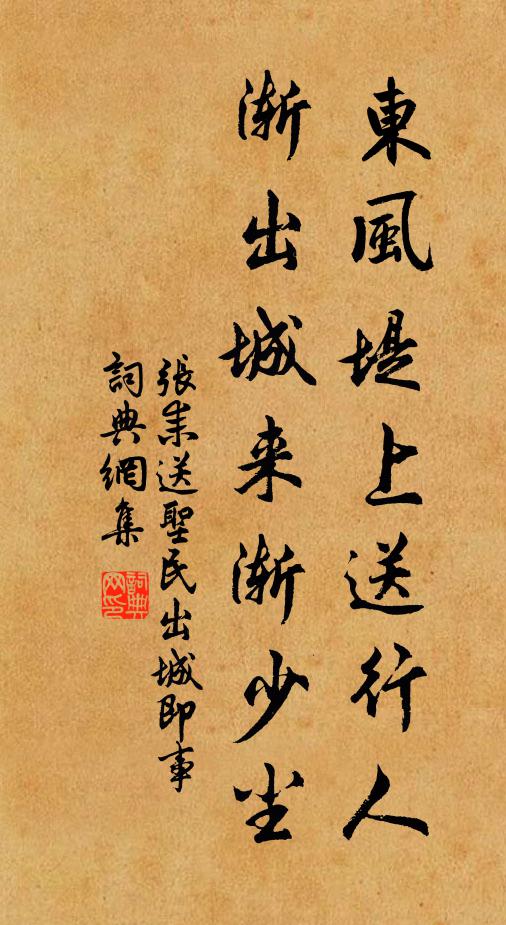 東風堤上送行人
渐出城来渐少尘
張耒送聖民出城即事
詞典網集
詞典
网印